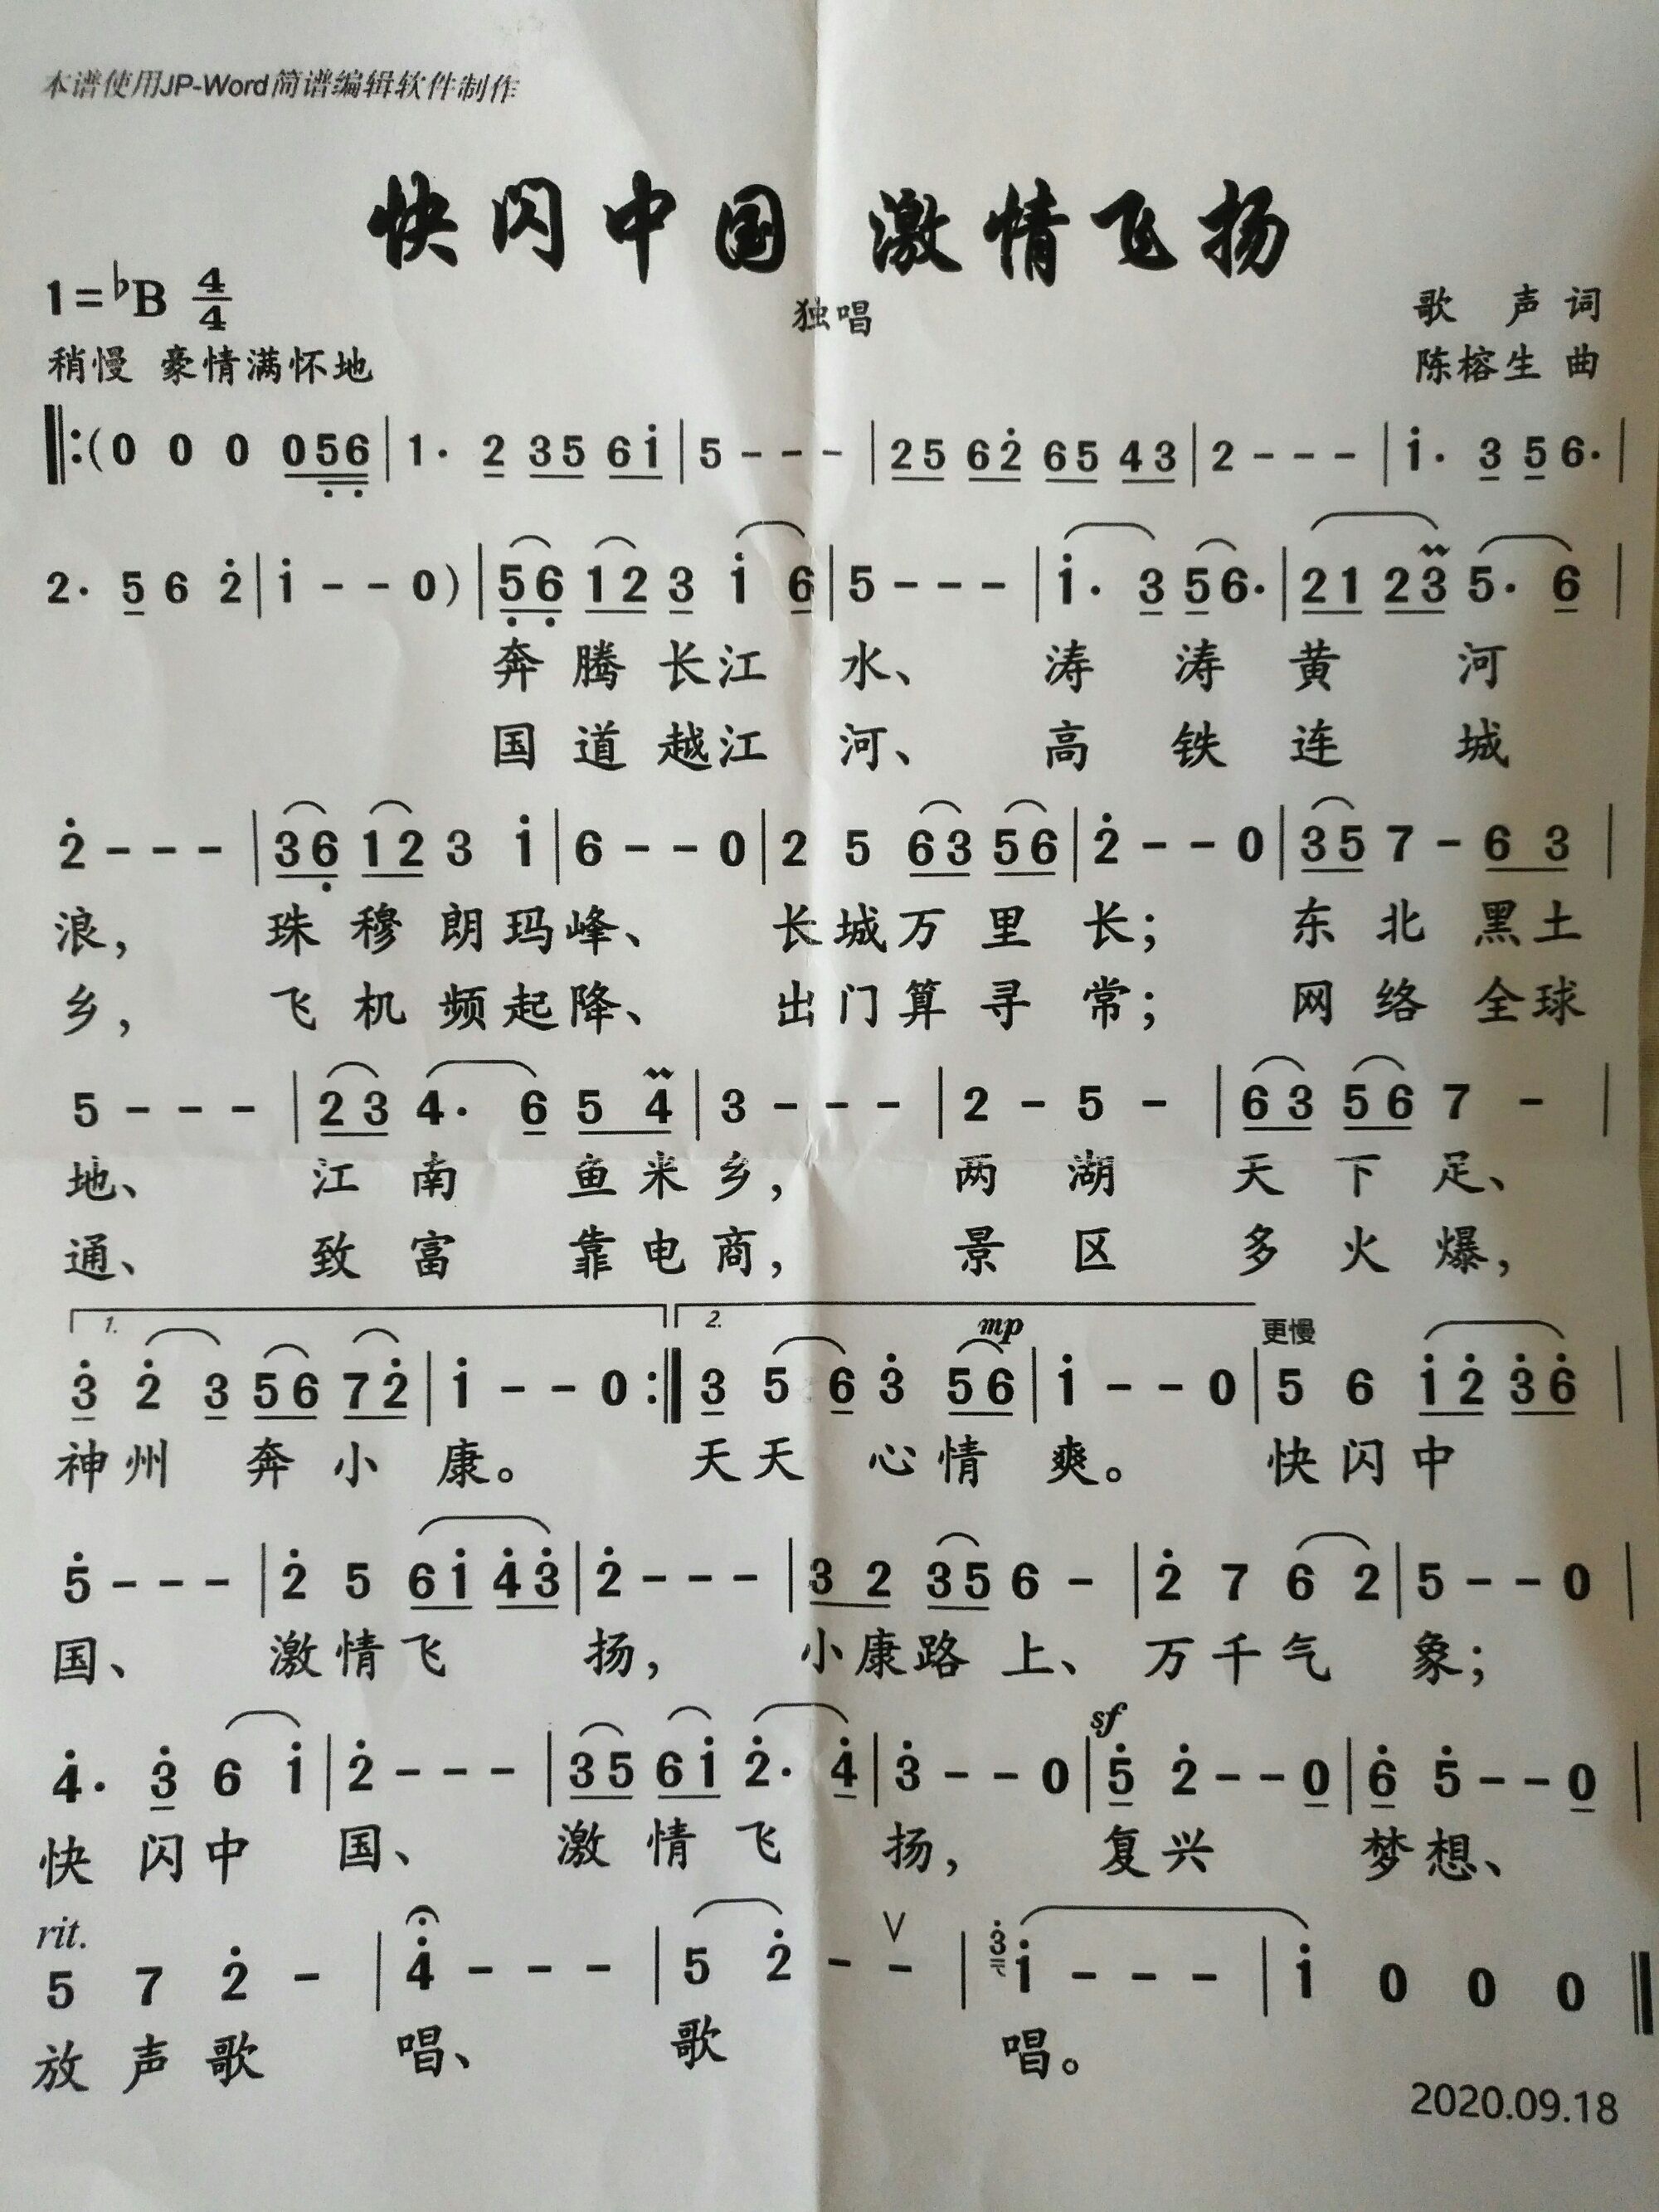 本谱使用JP-Word简谱编辑软件制作
快闪中国 激情飞扬
1=♭B 4/4
独唱
歌 声 词
稍慢 豪情满怀地
陈榕生 曲
‖:(0 0 0 056|1· 2 35 61̇|5 - - -|25 62̇ 65 43|2 - - -|1̇· 3 5 6·|
2· 5 6 2̇|1̇ - - 0)|5̣6̣ 12 3 1̇ 6|5 - - -|1̇· 3 56·|21 23 5· 6|
奔 腾 长江 水、 涛 涛 黄 河
国 道 越江 河、 高 铁 连 城
2̇ - - -|36̣ 12 3 1̇|6 - - 0|2 5 63 56|2̇ - - 0|35 7 - 6 3|
浪， 珠 穆 朗 玛 峰、 长 城 万 里 长； 东 北 黑土
乡， 飞 机 频 起 降、 出 门 算 寻 常； 网 络 全球
5 - - -|23 4· 6 5 4|3 - - -|2 - 5 -|63 56 7 -|
地、 江 南 鱼 米 乡， 两 湖 天 下 足、
通、 致 富 靠 电 商， 景 区 多 火 爆，
1. 2. mp 更慢
3̇ 2̇ 3 56 72̇|1̇ - - 0:‖3 5 6 3̇ 56|1̇ - - 0|5 6 1̇2̇ 3̇6̇|
神 州 奔 小 康。 天 天 心 情 爽。 快 闪 中
5̇ - - -|2̇ 5 61̇ 4̇3̇|2̇ - - -|3 2 35 6 -|2̇ 7 6 2|5 - - 0|
国、 激 情 飞 扬， 小 康 路 上、 万 千 气 象；
sf
4̇· 3̇ 6 1̇|2̇ - - -|35 61̇ 2̇· 4̇|3̇ - - 0|5̇ 2̇ - - 0|6̇ 5̇ - - 0|
快 闪 中 国、 激 情 飞 扬， 复 兴 梦 想、
rit.
5 7 2̇ -|4̇ - - -|5 2̇ - -|3̇ 1̇ - - -|1̇ 0 0 0‖
放 声 歌 唱、 歌 唱。
2020.09.18